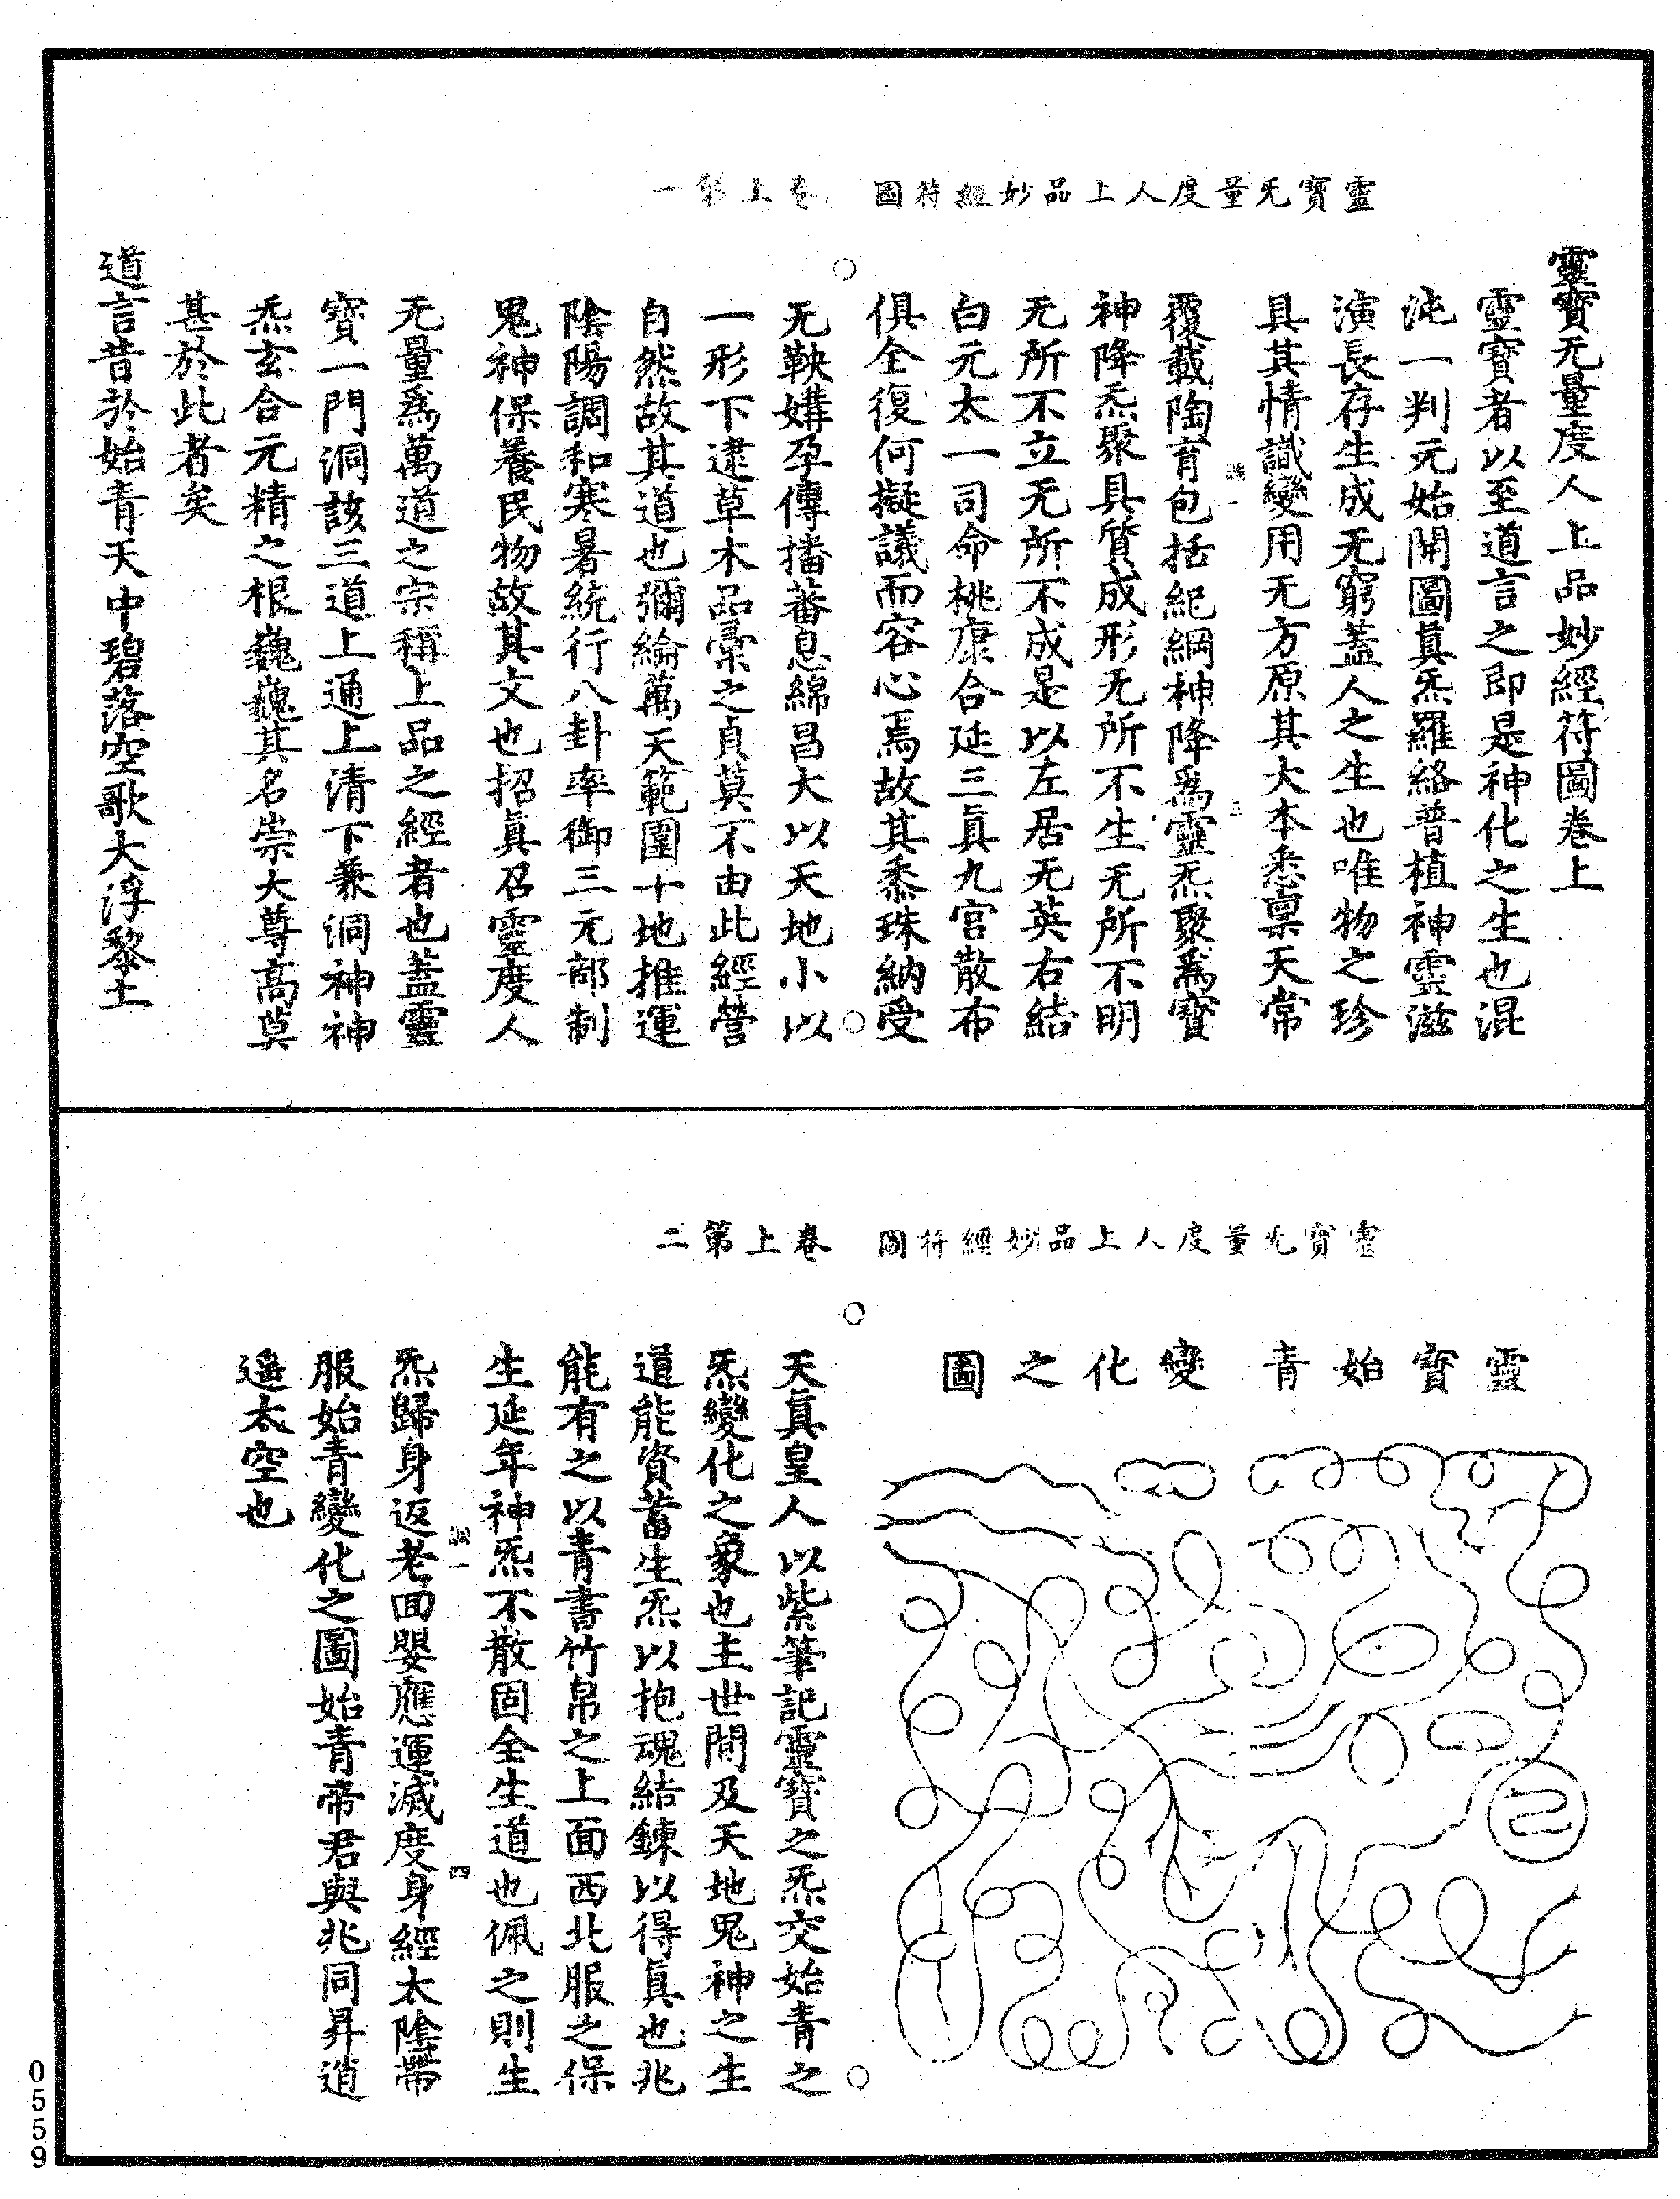 靈寶无量度人上品妙經符圖　卷上第一
靈寶无量度人上品妙經符圖卷上
靈寶者以至道言之即是神化之生也混
沌一判元始開圖真炁羅絡普植神靈滋
演長存生成无窮蓋人之生也唯物之珍
具其情識變用无方原其大本悉稟天常
覆載陶育包括紀綱神降為靈炁聚為寶
神降炁聚具質成形无所不生无所不明
无所不立无所不成是以左居无英右結
白元太一司命桃康合延三真九宮散布
俱全復何擬議而容心焉故其黍珠納受
无鞅媾孕傳播蕃息綿昌大以天地小以
一形下逮草木品彙之貞莫不由此經營
自然故其道也彌綸萬天範圍十地推運
陰陽調和寒暑統行八卦率御三元部制
鬼神保養民物故其文也招真召靈度人
无量為萬道之宗稱上品之經者也蓋靈
寶一門洞該三道上通上清下兼洞神神
炁玄合元精之根巍巍其名崇大尊高莫
甚於此者矣
道言昔於始青天中碧落空歌大浮黎土
靈寶无量度人上品妙經符圖　卷上第二
靈寶始青變化之圖
天真皇人以紫筆記靈寶之炁交始青之
炁變化之象也主世間及天地鬼神之生
道能資蓄生炁以抱魂結鍊以得真也兆
能有之以青書竹帛之上面西北服之保
生延年神炁不散固全生道也佩之則生
炁歸身返老回嬰應運滅度身經太陰帶
服始青變化之圖始青帝君與兆同昇逍
遙太空也
0559